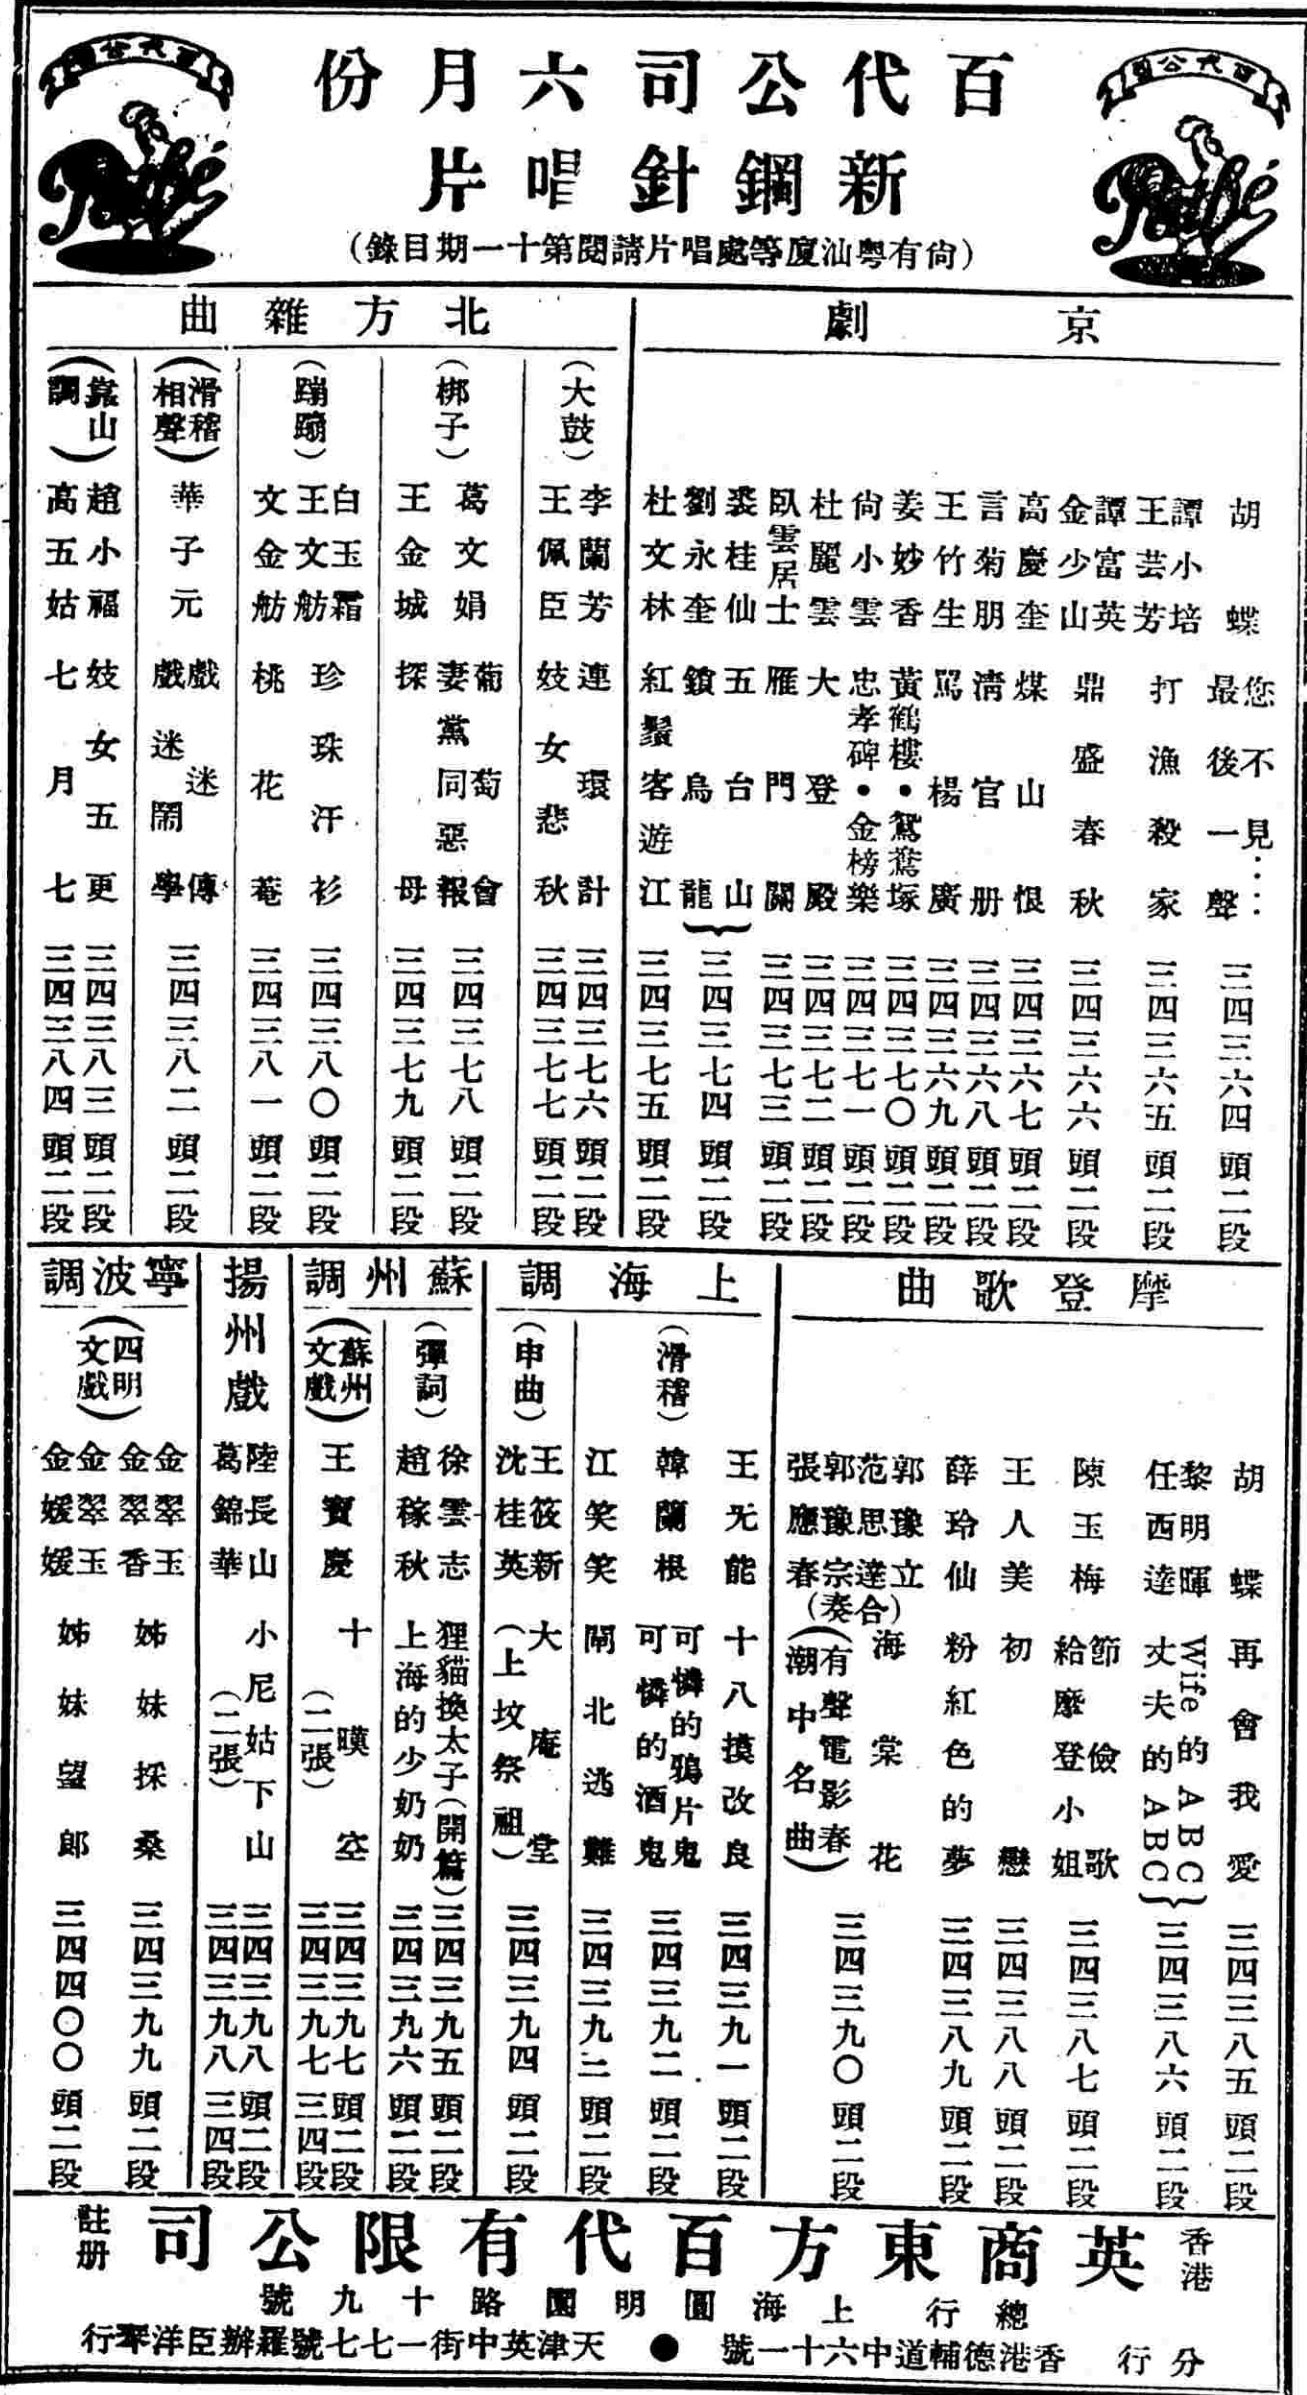 百代公司
Pathé
百代公司
Pathé
百代公司六月份
新鋼針唱片
(尚有粵汕廈等處唱片請閱第十一期目錄)
京劇
胡蝶 您不見……最後一聲 三四三六四 頭二段
譚小培 王芸芳 打漁殺家 三四三六五 頭二段
譚富英 金少山 鼎盛春秋 三四三六六 頭二段
高慶奎 煤山恨 三四三六七 頭二段
言菊朋 清官册 三四三六八 頭二段
王竹生 罵楊廣 三四三六九 頭二段
姜妙香 黃鶴樓•鴛鴦塚 三四三七〇 頭二段
尚小雲 忠孝碑•金榜樂 三四三七一 頭二段
杜麗雲 大登殿 三四三七二 頭二段
臥雲居士 雁門關 三四三七三 頭二段
裘桂仙 五台山
劉永奎 鎖烏龍 三四三七四 頭二段
杜文林 紅鬚客遊江 三四三七五 頭二段
北方雜曲
(大鼓)
李蘭芳 連環計 三四三七六 頭二段
王佩臣 妓女悲秋 三四三七七 頭二段
(梆子)
葛文娟 葡萄會 妻黨同惡報 三四三七八 頭二段
王金城 探母 三四三七九 頭二段
(蹦蹦)
白玉霜 王文舫 珍珠汗衫 三四三八〇 頭二段
文金舫 桃花菴 三四三八一 頭二段
(滑稽相聲)
華子元 戲迷傳 戲迷鬧學 三四三八二 頭二段
(靠山調)
趙小福 妓女五更 三四三八三 頭二段
高五姑 七月七 三四三八四 頭二段
摩登歌曲
胡蝶 再會我愛 三四三八五 頭二段
黎明暉 任西達 Wife的ABC 丈夫的ABC 三四三八六 頭二段
陳玉梅 節儉歌 給摩登小姐 三四三八七 頭二段
王人美 初戀 三四三八八 頭二段
薛玲仙 粉紅色的夢 三四三八九 頭二段
郭豫立 范思達 郭豫宗 張應春 (合奏) 海棠花 (有聲電影春潮中名曲) 三四三九〇 頭二段
上海調
(滑稽)
王无能 十八摸改良 三四三九一 頭二段
韓蘭根 可憐的鴉片鬼 可憐的酒鬼 三四三九二 頭二段
江笑笑 閘北逃難 三四三九三 頭二段
(申曲)
王筱新 沈桂英 大庵堂 (上坟祭祖) 三四三九四 頭二段
蘇州調
(彈詞)
徐雲志 狸貓換太子(開篇) 三四三九五 頭二段
趙稼秋 上海的少奶奶 三四三九六 頭二段
(蘇州文戲)
王寶慶 十嘆空 (二張) 三四三九七 頭二段
三四三九七 三四段
揚州戲
陸長山 葛錦華 小尼姑下山 (二張) 三四三九八 頭二段
三四三九八 三四段
寧波調
(四明文戲)
金翠玉 金翠香 姊妹採桑 三四三九九 頭二段
金翠玉 金媛媛 姊妹望郎 三四四〇〇 頭二段
香港 英商東方百代有限公司 註册
總行 上海圓明園路十九號
分行 香港德輔道中六十一號 ● 天津英中街一七七號羅辦臣洋琴行